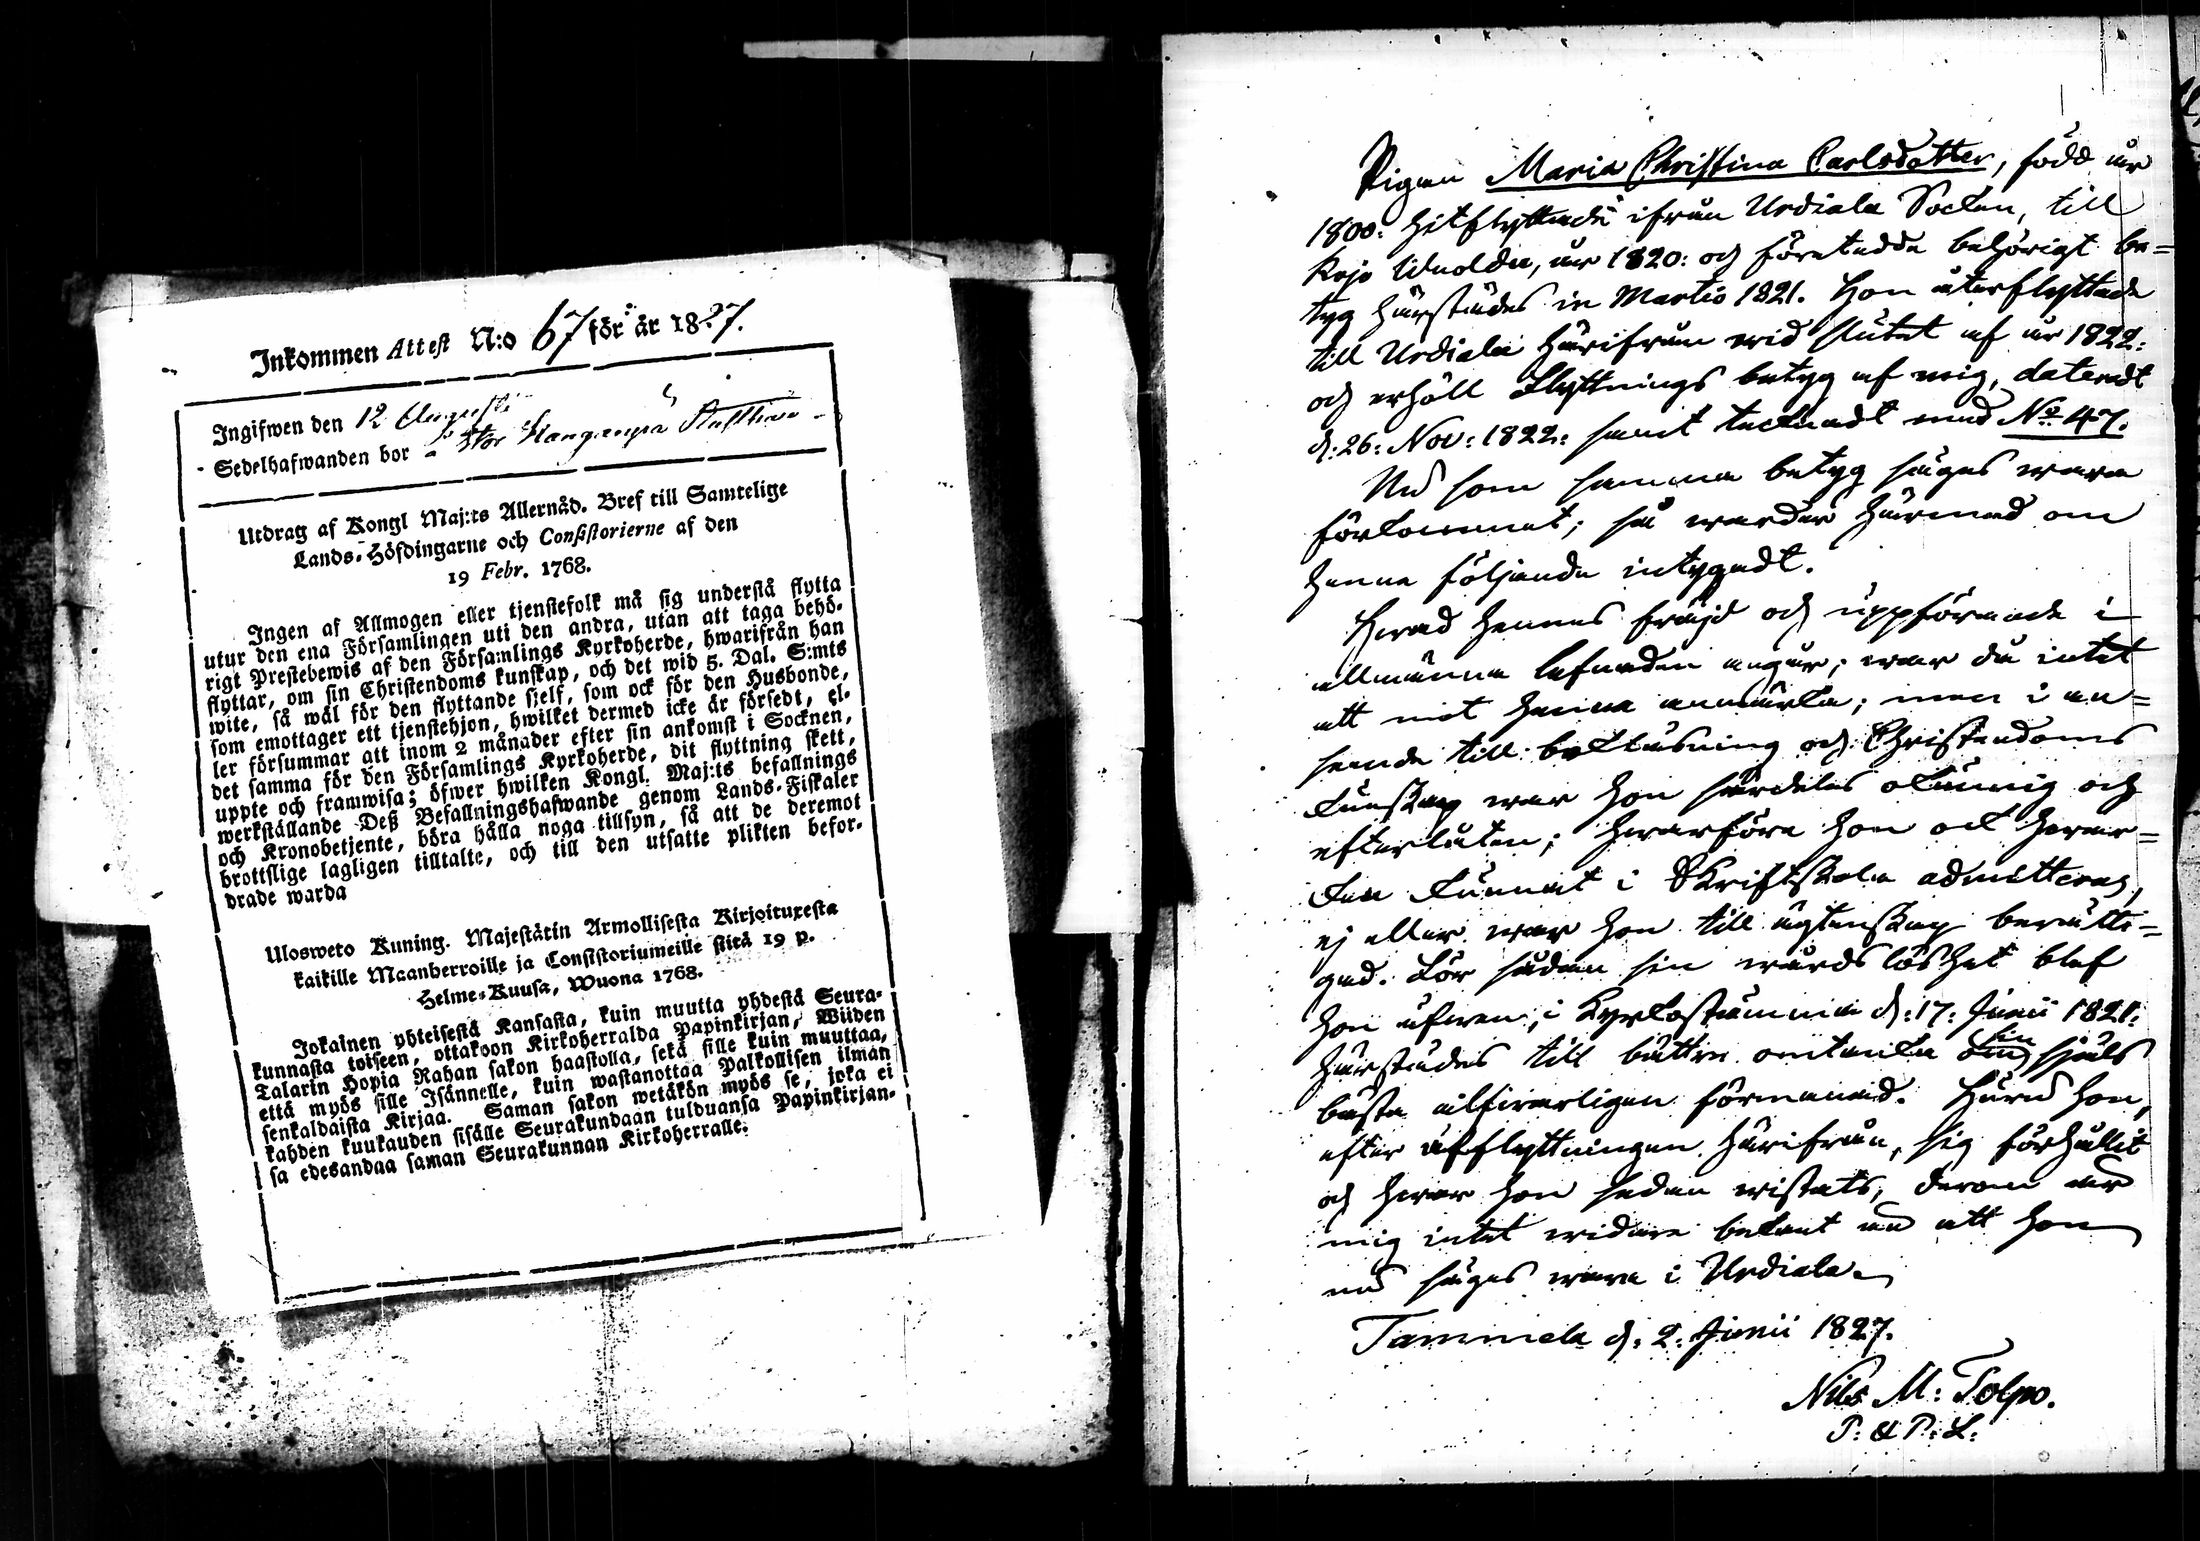 Inkommen Attest N:o 67 för år 1827.
Ingifwen den 12 Augusti
Sedelhafwanden bor Stor Kanganpä
Utdrag af Kongl Maj:ts Allernåd. Bref till Samtelige
Lands-Höfdingarne och Consistorierne af den
19 Febr. 1768.
Ingen af Allmogen eller tjenstefolk må sig understå flytta
utur den ena Församlingen uti den andra, utan att taga behö-
rigt Prestebewis af den Församlings Kyrkoherde, hwarifrån han
flyttar, om sin Christendoms kunskap, och det wid 5. Dal. S:mts
wite, så wäl för den flyttande sjelf, som ock för den Husbonde,
som emottager ett tjenstehjon, hwilket dermed icke är försedt, el-
ler försummar att inom 2 månader efter sin ankomst i Socknen,
det samma för den Församlings Kyrkoherde, dit flyttning skett,
uppte och framwisa; öfwer hwilken Kongl. Maj:ts befallnings
werkställande Deß Befallningshafwande genom Lands-Fiskaler
och Kronobetjente, böra hålla noga tillsyn, så att de deremot
brottslige lagligen tilltalte, och till den utsatte plikten befor-
drade warda
Ulosweto Kuning. Majestätin Armollisesta Kirjoituxesta
kaikille Maanherroille ja Consistoriumeille siitä 19 p.
Helme-Kuusa, Wuona 1768.
Jokainen yhteisestä Kansasta, kuin muutta yhdestä Seura-
kunnasta toiseen, ottakoon Kirkoherralda Papinkirjan, Wiiden
Talarin Hopia Rahan sakon haastolla, sekä sille kuin muuttaa,
että myös sille Isännelle, kuin wastanottaa Palkollisen ilman
senkaldaista Kirjaa. Saman sakon wetäkön myös se, joka ei
kahden kuukauden sisälle Seurakundaan tulduansa Papinkirjan-
sa edesandaa saman Seurakunnan Kirkoherralle.
Pigan Maria Christina Carlsdotter, född år
1800: hitflyttade ifrån Urdiala Sockn, till
Kojo, år 1820: och företedde behörigt be=
tyg härstädes in Martio 1821. Hon återflyttade
till Urdiala härifrån wid slutet af år 1822:
och erhöll Flyttnings betyg af mig, dateradt
d: 26: Nov: 1822: samt tecknadt med No 47.
Nu som samma betyg säges wara
förkommet; så warder härmed om
henne följande intygadt.
Hwad hennes fräjd och uppförande i
allmänna lefnaden angår; war då intet
att mot henne anmärka; men i an=
seende till bokläsning och Christendoms
kunskap war hon särdeles okunnig och
efterlåten; hwarföre hon ock hwar=
ken kunnat i Skriftskola admitteras,
ej eller war hon till ägtenskap berätti=
gad. För sådan sin wårdslöshet blef
hon äfwen, i Kyrkostämman d: 17: Junii 1821:
härstädes till bättre omtanka om sin själs
bästa alfwarligen förmanad. Huru hon,
efter afflyttningen härifrån, sig förhållit
och hwar hon sedan wistats, derom är
mig intet widare bekant än att hon
nu säges wara i Urdiala.
Tammela d: 2: Junii 1827.
Nils M: Tolpo.
P: & P: L: